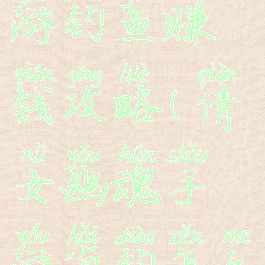 游钓鱼赚
qián gōng lüè qiàn
钱攻略(倩
nǚ yōu hún shǒu
女幽魂手
yóu hǎi diào zěn me
游海钓怎么